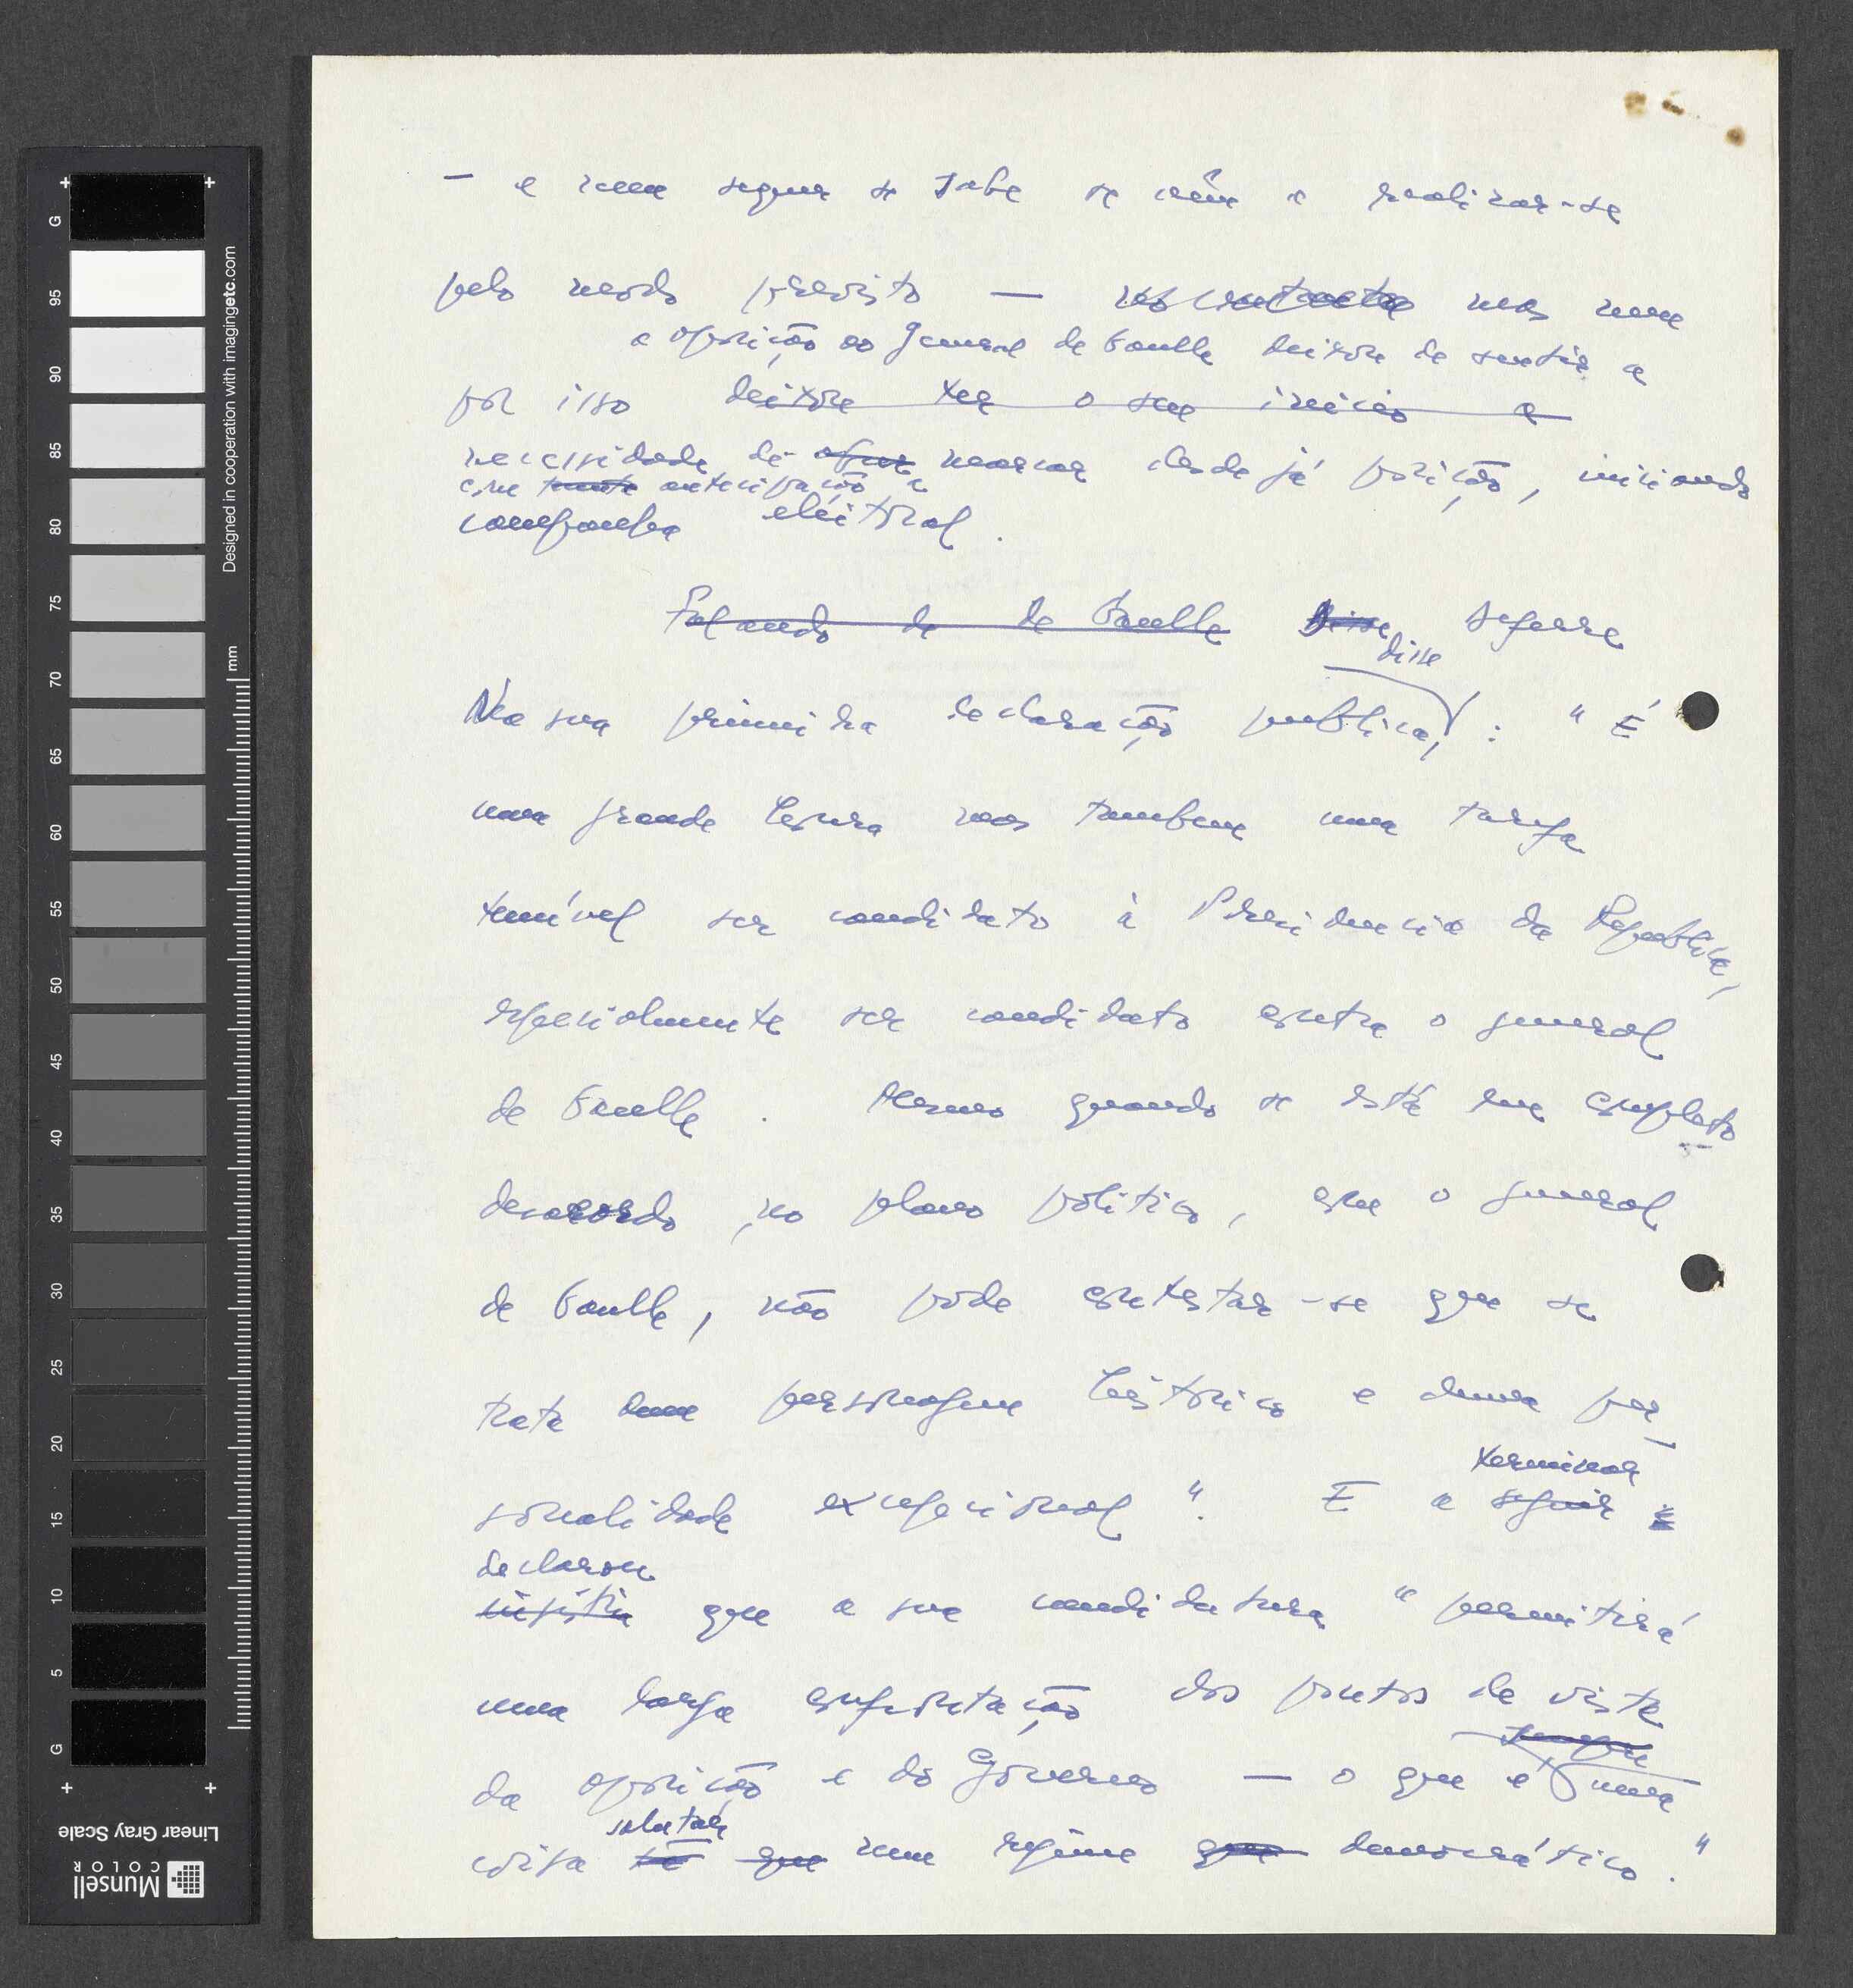 — e nem sequer se sabe se virá a realizar-se
pelo modo previsto — no entanto mas nem
a oposição ao General de Gaulle deixou de sentir a
por isso deixou ter o seu início a
necessidade de marcar desde já posição, iniciando
com tanta antecipação a
campanha eleitoral.
Falando de de Gaulle disse Deferre
disse
Na sua primeira declaração publica, : " É
uma grande honra mas tambem uma tarefa
temível ser candidato à Presidencia da Republica,
especialmente ser candidato contra o general
de Gaulle. Mesmo quando se está em completo
desacordo, no plano politico, com o general
de Gaulle, não pode contestar-se que se
trata dum personagem histórico e duma per-
terminar
sonalidade excepcional". E a seguir
declarou
insistiu que a sua candidatura " permitirá
uma larga confrontação dos pontos de vista
sempre
da oposição e do Governo — o que é uma
salutar
coisa que num regime que democrático."
Designed in cooperation with imagingetc.com
mm
G
95
90
85
80
75
70
65
60
55
50
45
40
35
30
25
20
15
10
5
G
Linear Gray Scale
Munsell
COLOR